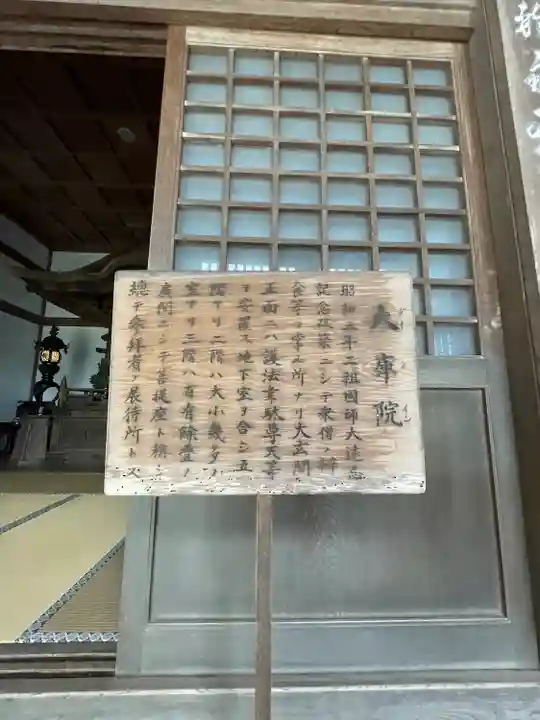 大庫院
昭和五年二祖國師大遠忌
記念改築ニシテ衆僧ノ辨
食等ヲ掌ル所ナリ大玄関
正面ニハ護法韋駄尊天等
ヲ安置ス地下室ヲ合シ五
階ナリ二階ハ大小幾多ノ
室アリ三階ハ百有餘疊ノ
廣間ニシテ菩提座ト稱シ
總テ參拜者ノ展待所トス